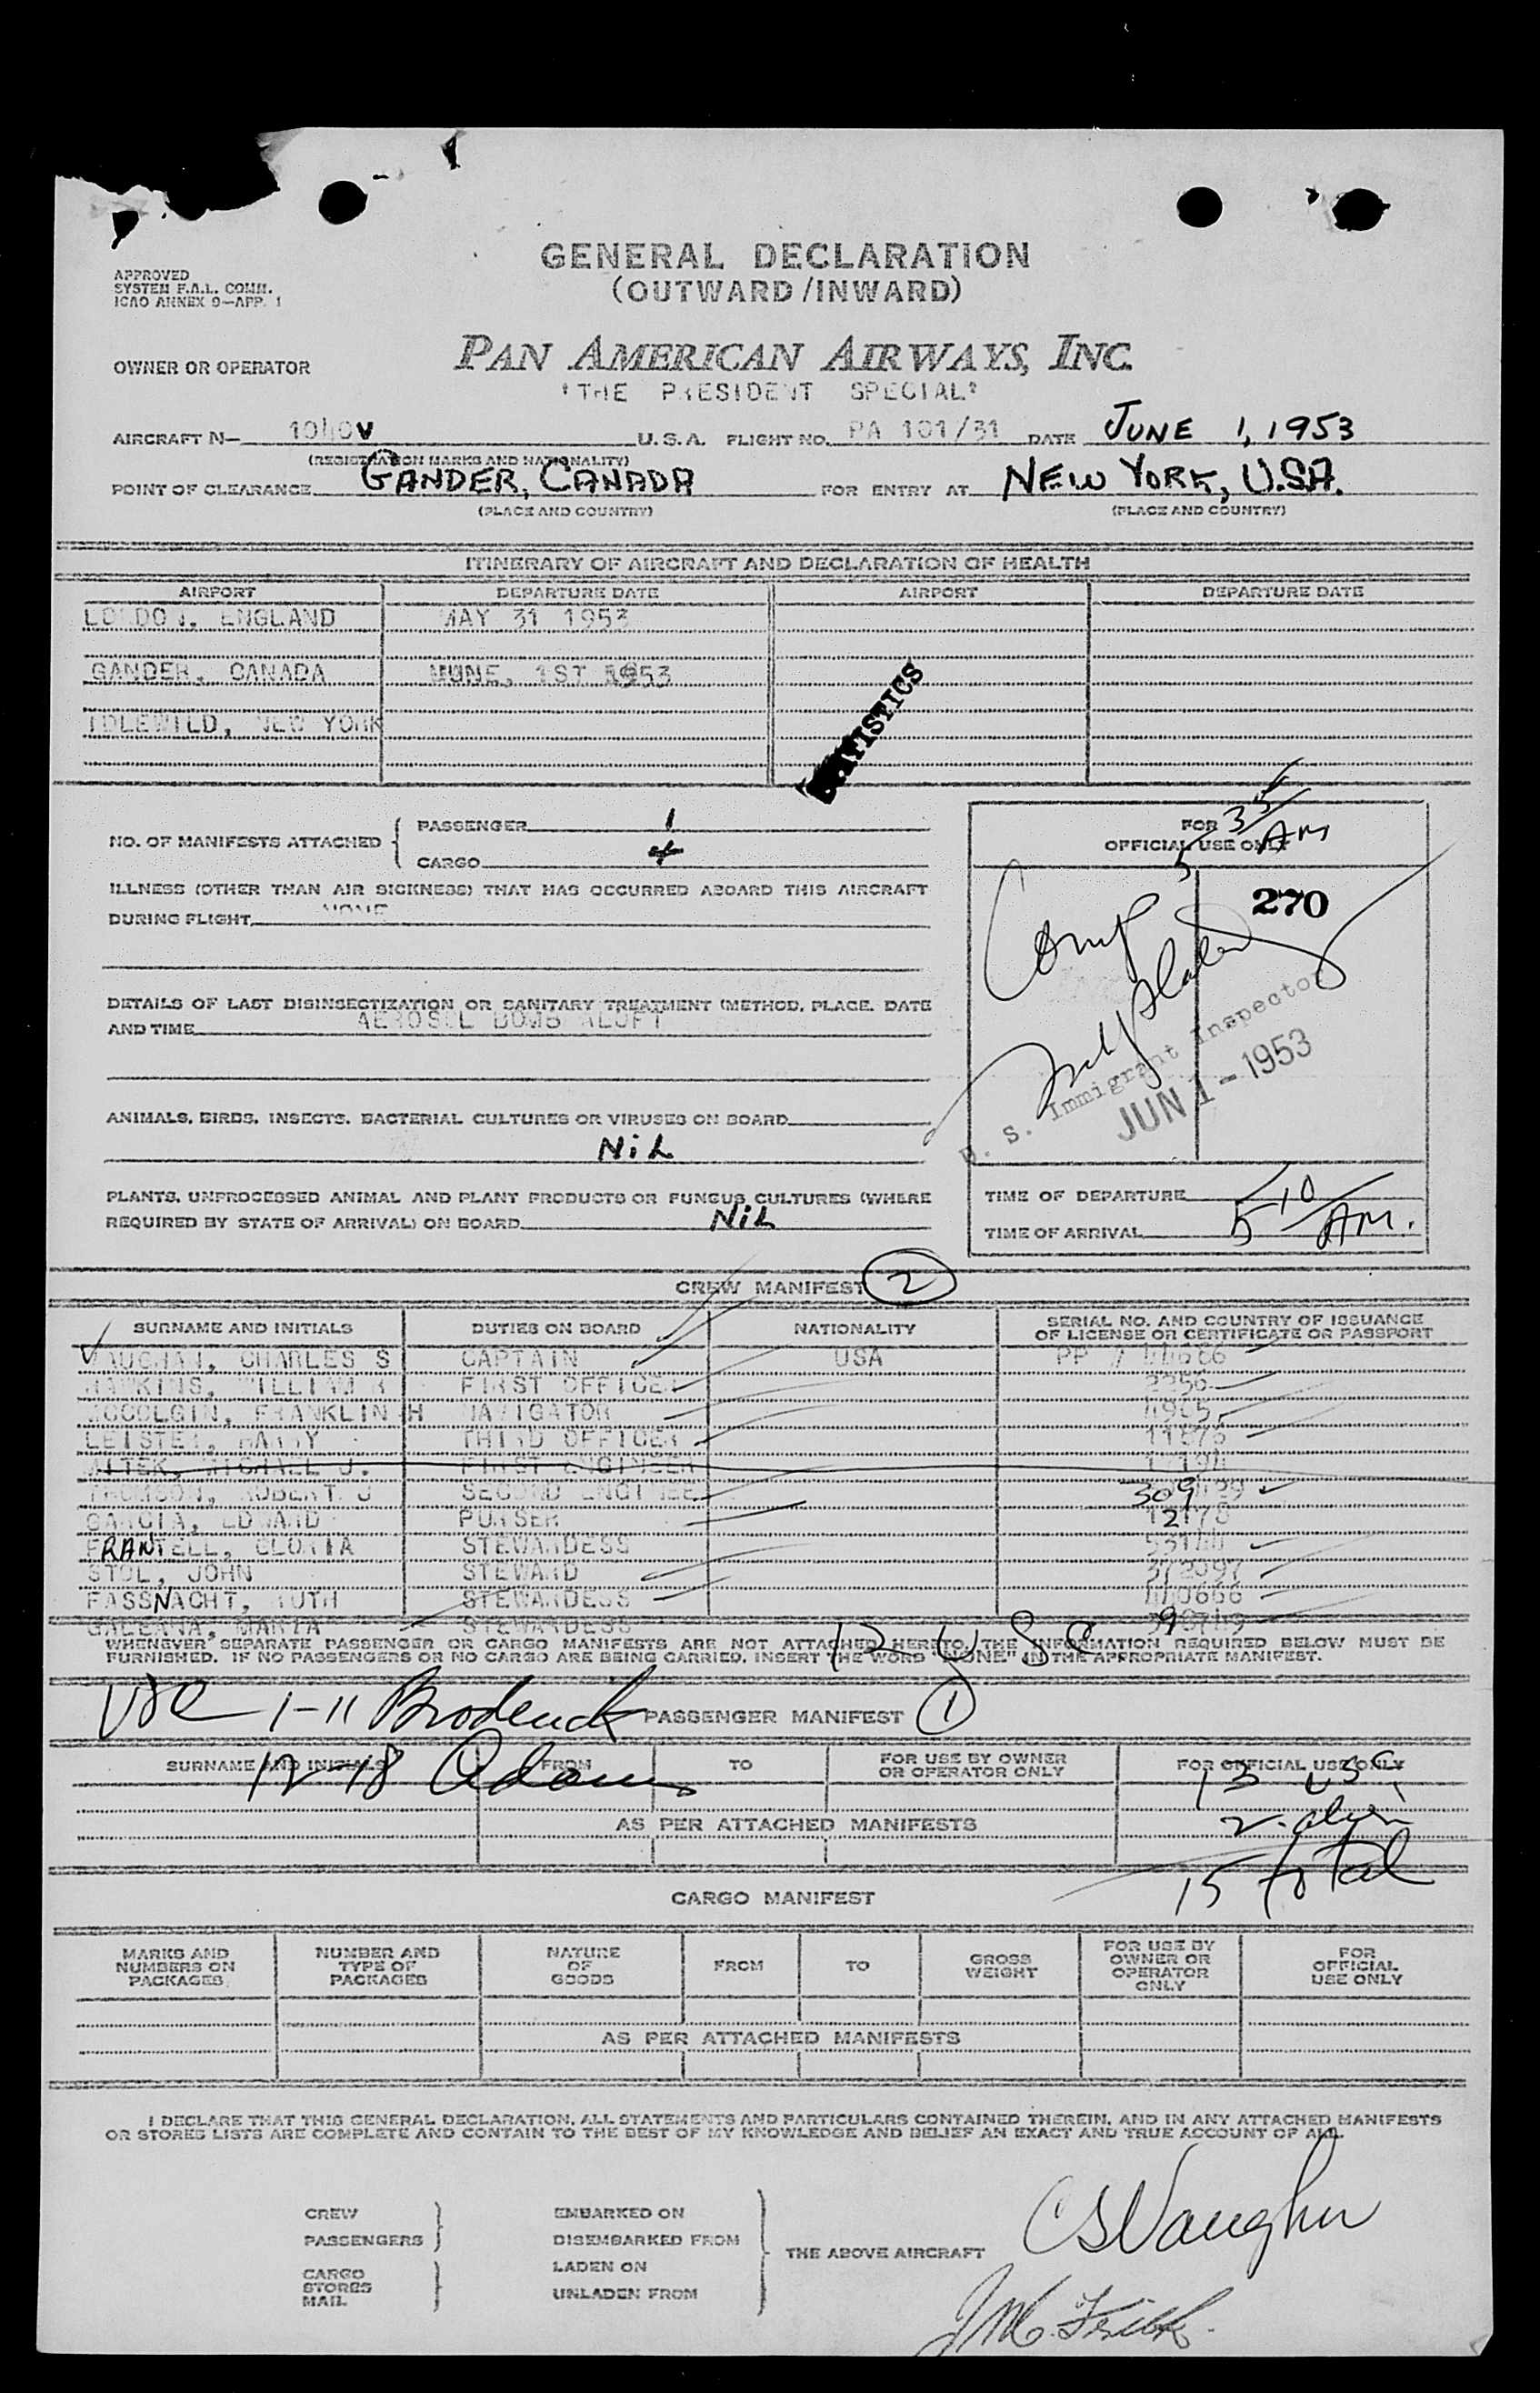 GENERAL DECLARATION
(OUTWARD/INWARD)
APPROVED
SYSTEM F.A.L. COMM.
ICAO ANNEX 9—APP. 1
OWNER OR OPERATOR PAN AMERICAN AIRWAYS, INC.
"THE PRESIDENT SPECIAL"
AIRCRAFT N— 1040V U.S.A. FLIGHT NO. PA 101/31 DATE JUNE 1, 1953
(REGISTRATION MARKS AND NATIONALITY)
POINT OF CLEARANCE GANDER, CANADA FOR ENTRY AT NEW YORK, U.S.A.
(PLACE AND COUNTRY) (PLACE AND COUNTRY)
ITINERARY OF AIRCRAFT AND DECLARATION OF HEALTH
AIRPORT DEPARTURE DATE AIRPORT DEPARTURE DATE
LONDON, ENGLAND MAY 31 1953
GANDER, CANADA JUNE, 1ST 1953
IDLEWILD, NEW YORK
NO. OF MANIFESTS ATTACHED
PASSENGER 1
CARGO
ILLNESS (OTHER THAN AIR SICKNESS) THAT HAS OCCURRED ABOARD THIS AIRCRAFT
DURING FLIGHT NONE
DETAILS OF LAST DISINSECTIZATION OR SANITARY TREATMENT (METHOD, PLACE, DATE
AND TIME AEROSOL BOMB ALOFT
ANIMALS, BIRDS, INSECTS, BACTERIAL CULTURES OR VIRUSES ON BOARD
NiL
PLANTS, UNPROCESSED ANIMAL AND PLANT PRODUCTS OR FUNGUS CULTURES (WHERE
REQUIRED BY STATE OF ARRIVAL) ON BOARD NiL
FOR
OFFICIAL USE ONLY
5 35 AM
270
U. S. Immigrant Inspector
JUN 1 - 1953
TIME OF DEPARTURE
TIME OF ARRIVAL 5 10 AM.
CREW MANIFEST 2
SURNAME AND INITIALS DUTIES ON BOARD NATIONALITY SERIAL NO. AND COUNTRY OF ISSUANCE
OF LICENSE OR CERTIFICATE OR PASSPORT
VAUGHAN, CHARLES S CAPTAIN USA PP #
HAWKINS, WILLIAM R FIRST OFFICER
MCCOLGIN, FRANKLIN H NAVIGATOR
LEISTER, HARRY THIRD OFFICER
MITEK, MICHAEL J. FIRST ENGINEER
THOMSON, ROBERT J SECOND ENGINEE
GARCIA, EDWARD PURSER
FRANTELL, GLORIA STEWARDESS
STOL, JOHN STEWARD 372097
FASSNACHT, RUTH STEWARDESS 440666
GALEANA, MARIA STEWARDESS
WHENEVER SEPARATE PASSENGER OR CARGO MANIFESTS ARE NOT ATTACHED HERETO, THE INFORMATION REQUIRED BELOW MUST BE
FURNISHED. IF NO PASSENGERS OR NO CARGO ARE BEING CARRIED, INSERT THE WORD "NONE" IN THE APPROPRIATE MANIFEST.
12 USC
USC 1-11 Broderick PASSENGER MANIFEST 1
SURNAME AND INITIALS FROM TO FOR USE BY OWNER
OR OPERATOR ONLY FOR OFFICIAL USE ONLY
12-18 Adams 13 USC
AS PER ATTACHED MANIFESTS 2 alien
15 total
CARGO MANIFEST
MARKS AND
NUMBERS ON
PACKAGES
NUMBER AND
TYPE OF
PACKAGES
NATURE
OF
GOODS
FROM
TO
GROSS
WEIGHT
FOR USE BY
OWNER OR
OPERATOR
ONLY
FOR
OFFICIAL
USE ONLY
AS PER ATTACHED MANIFESTS
I DECLARE THAT THIS GENERAL DECLARATION, ALL STATEMENTS AND PARTICULARS CONTAINED THEREIN, AND IN ANY ATTACHED MANIFESTS
OR STORES LISTS ARE COMPLETE AND CONTAIN TO THE BEST OF MY KNOWLEDGE AND BELIEF AN EXACT AND TRUE ACCOUNT OF ALL
CREW
PASSENGERS
CARGO
STORES
MAIL
EMBARKED ON
DISEMBARKED FROM
LADEN ON
UNLADEN FROM
THE ABOVE AIRCRAFT
CSVaughn